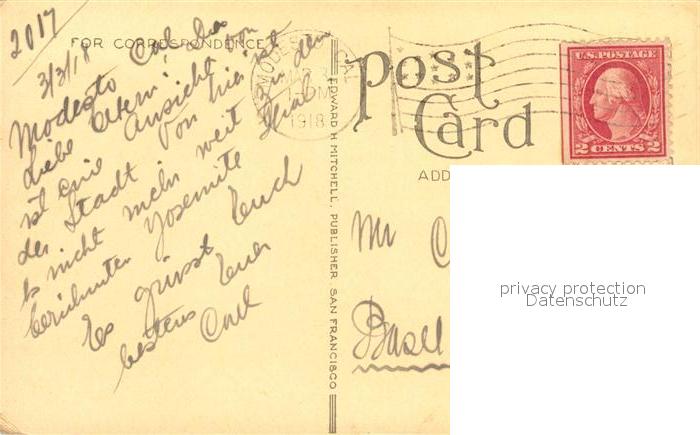 2017
FOR CORRESPONDENCE
3/3/18
Modesto Cal
Liebe Eltern! Das
ist eine Ansicht von
der Stadt. Von hier ist
es nicht mehr weit zu dem
berühmten Yosemite
Es grüsst Euch
bestens Euer
Carl
EDWARD H. MITCHELL, PUBLISHER, SAN FRANCISCO
MODESTO, CAL
1918
Post
Card
ADD
U.S. POSTAGE
2 CENTS 2
Mr C
Basel
privacy protection
Datenschutz